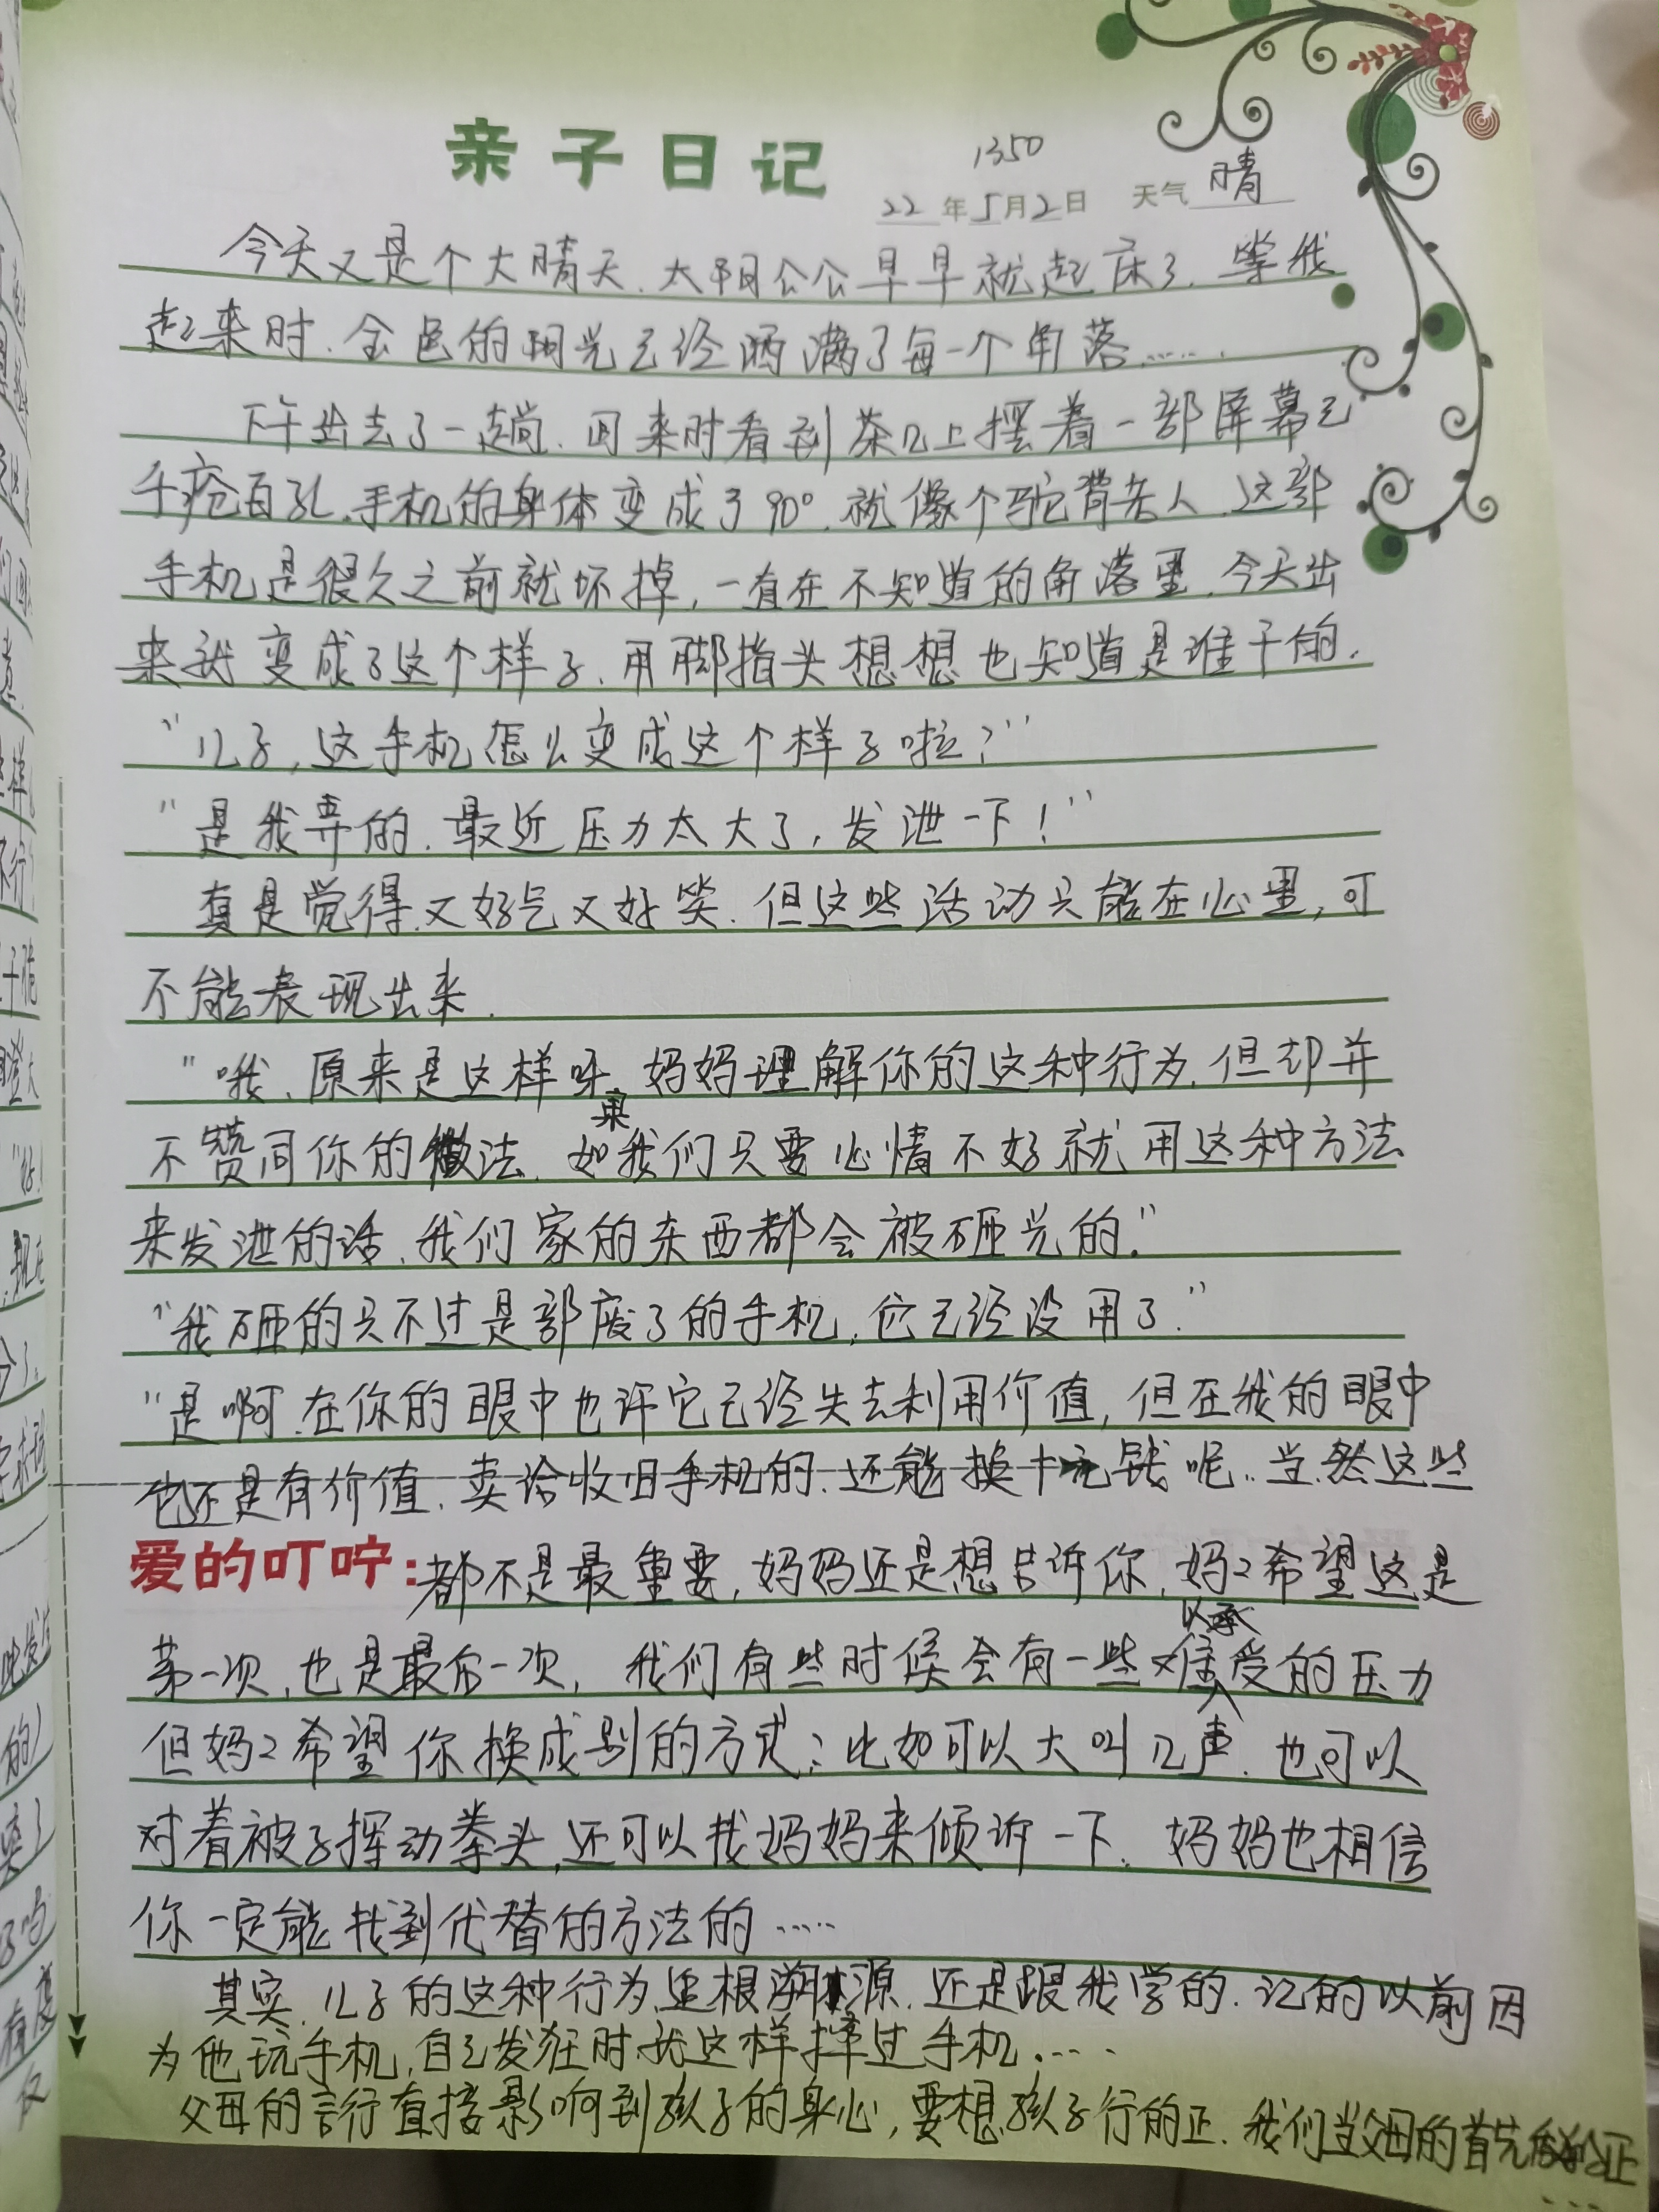 亲子日记
1350
22年5月2日 天气 晴
今天又是个大晴天.太阳公公早早就起床了.等我
起来时.金色的阳光已经洒满了每一个角落......
下午出去了一趟.回来时看到茶几上摆着一部屏幕已
千疮百孔.手机的身体变成了90°.就像个驼背老人.这部
手机是很久之前就坏掉,一直在不知道的角落里.今天出
来就变成了这个样子.用脚指头想想也知道是谁干的.
"儿子,这手机怎么变成这个样子啦?"
"是我弄的.最近压力太大了,发泄一下!"
真是觉得又好气又好笑.但这些活动只能在心里,可
不能表现出来.
"哦.原来是这样呀.妈妈理解你的这种行为.但却并
不赞同你的做法.如果我们只要心情不好就用这种方法
来发泄的话.我们家的东西都会被砸光的."
"我砸的只不过是部废了的手机,它已经没用了."
"是啊.在你的眼中也许它已经失去利用价值,但在我的眼中
他还是有价值.卖给收旧手机的.还能换十元钱呢..当然这些
爱的叮咛:都不是最重要,妈妈还是想告诉你,妈2希望这是
第一次,也是最后一次,我们有些时候会有一些难以承受的压力
但妈2希望你换成别的方式;比如可以大叫几声.也可以
对着被子挥动拳头,还可以找妈妈来倾诉一下.妈妈也相信
你一定能找到代替的方法的.....
其实.儿子的这种行为.追根溯源.还是跟我学的.记的以前因
为他玩手机,自己发狂时就这样摔过手机.....
父母的言行直接影响到孩子的身心,要想孩子行的正.我们当父母的首先正
....